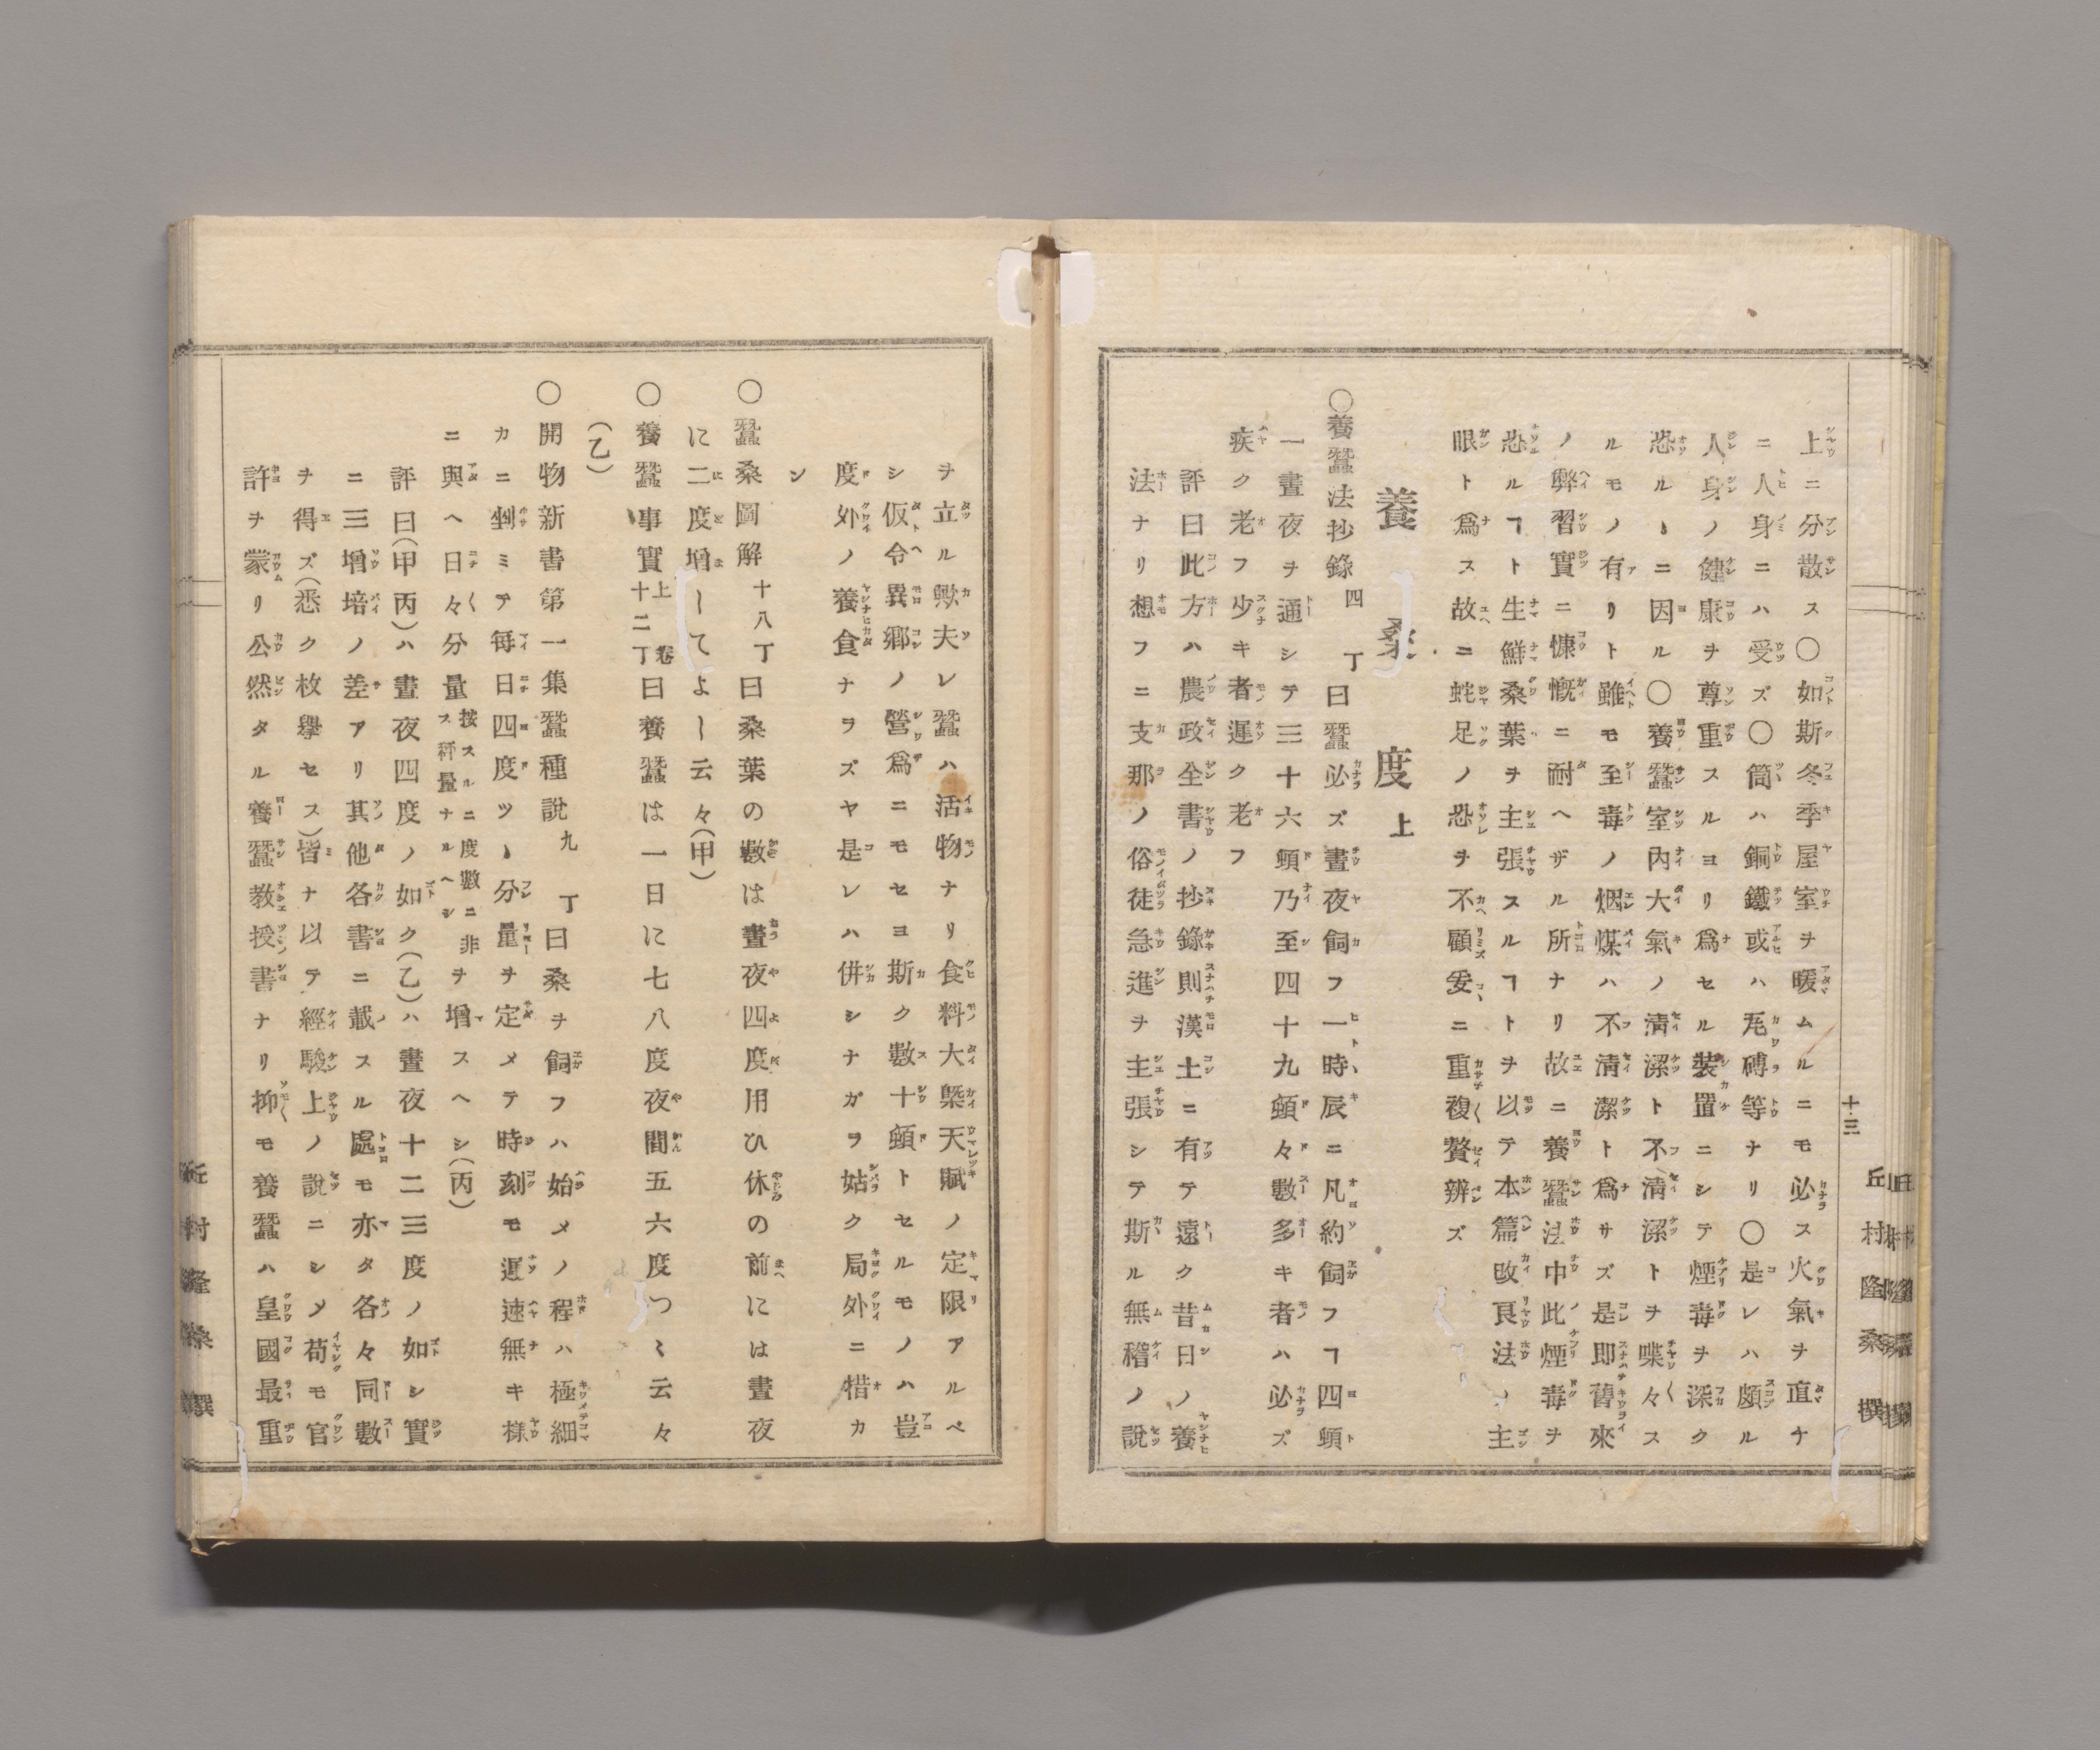 上ニ分散ス〇如斯冬季屋室ヲ暖ムルニモ必ス火氣ヲ直ケ
ニ人身ニハ受ズ〇筒ハ銅鐵或ハ瓦磚等ナリ〇是レハ頗ル
人身ノ健康ヲ尊重スルヨリ爲セル裝置ニシテ煙毒ヲ深ク
恐ルヽニ因ル〇養蠶室內大氣ノ淸潔ト不淸潔トヲ喋々ス
ルモノ有リト雖ニモ至毒ノ烟煤ハ不淸潔ト爲サズ是即舊來
ノ弊習實ニ慷慨ニ耐ヘザル所ナリ故ニ養蠶法中此煙毒ヲ
恐ルヿト生鮮桑葉ヲ主張スルヿトヲ以テ本篇改良法ノ主
眼ト爲ス故ニ蛇足ノ恐ヲ不顧爰ニ重複贅辨ズ
養桑度上
〇養蠶法抄錄四丁曰蠶必ズ晝夜飼フ一時辰ニ凡約飼フヿ四頓
一晝夜ヲ通シテ三十六頓乃至四十九頓々數多キ者ハ必ズ
疾ク老フ少キ者遲ク老フ
評曰此方ハ農政全書ノ抄錄則漢土ニ有テ遠ク昔日ノ養
法ナリ想フニ支那ノ俗徒急進ヲ主張シテ斯ル無稽ノ說
十三
丘村隆桑撰
ヲ立ル歟夫レ蠶ハ活物ナリ食料大槩天賦ノ定限アルベ
シ仮令ヘ異鄕ノ營爲ニモセヨ斯ク數十頓トセルモノハ豈
度外ノ養食ナラズヤ是レハ併シナガヲ姑ク局外ニ措カ
ン
〇蠶桑圖解十八丁曰桑葉の數は晝夜四度用ひ休の前には晝夜
に二度增ーてよー云々(甲)
〇養蠶事實上卷十二丁曰養蠶は一日に七八度夜間五六度つヽ云々
(乙)
〇開物新書第一集蠶種說九丁曰桑ヲ飼フハ始メノ程ハ極細
カニ剉ミテ每日四度ツヽ分量ヲ定メテ時刻モ遲速無キ樣
ニ與ヘ日々分量按スルニ度數ニ非ス秤量ナルヘシヲ增スヘシ(丙)
評曰(甲丙)ハ晝夜四度ノ如ク(乙)ハ晝夜十二三度ノ如シ實
ニ三增培ノ差アリ其他各書ニ載スル處モ亦タ各々同數
ヲ得ズ(悉ク枚擧セス)皆ナ以テ經驗上ノ說ニシメ苟モ官
許ヲ蒙リ公然タル養蠶敎授書ナリ抑モ養蠶ハ皇國最重
丘村隆桑撰